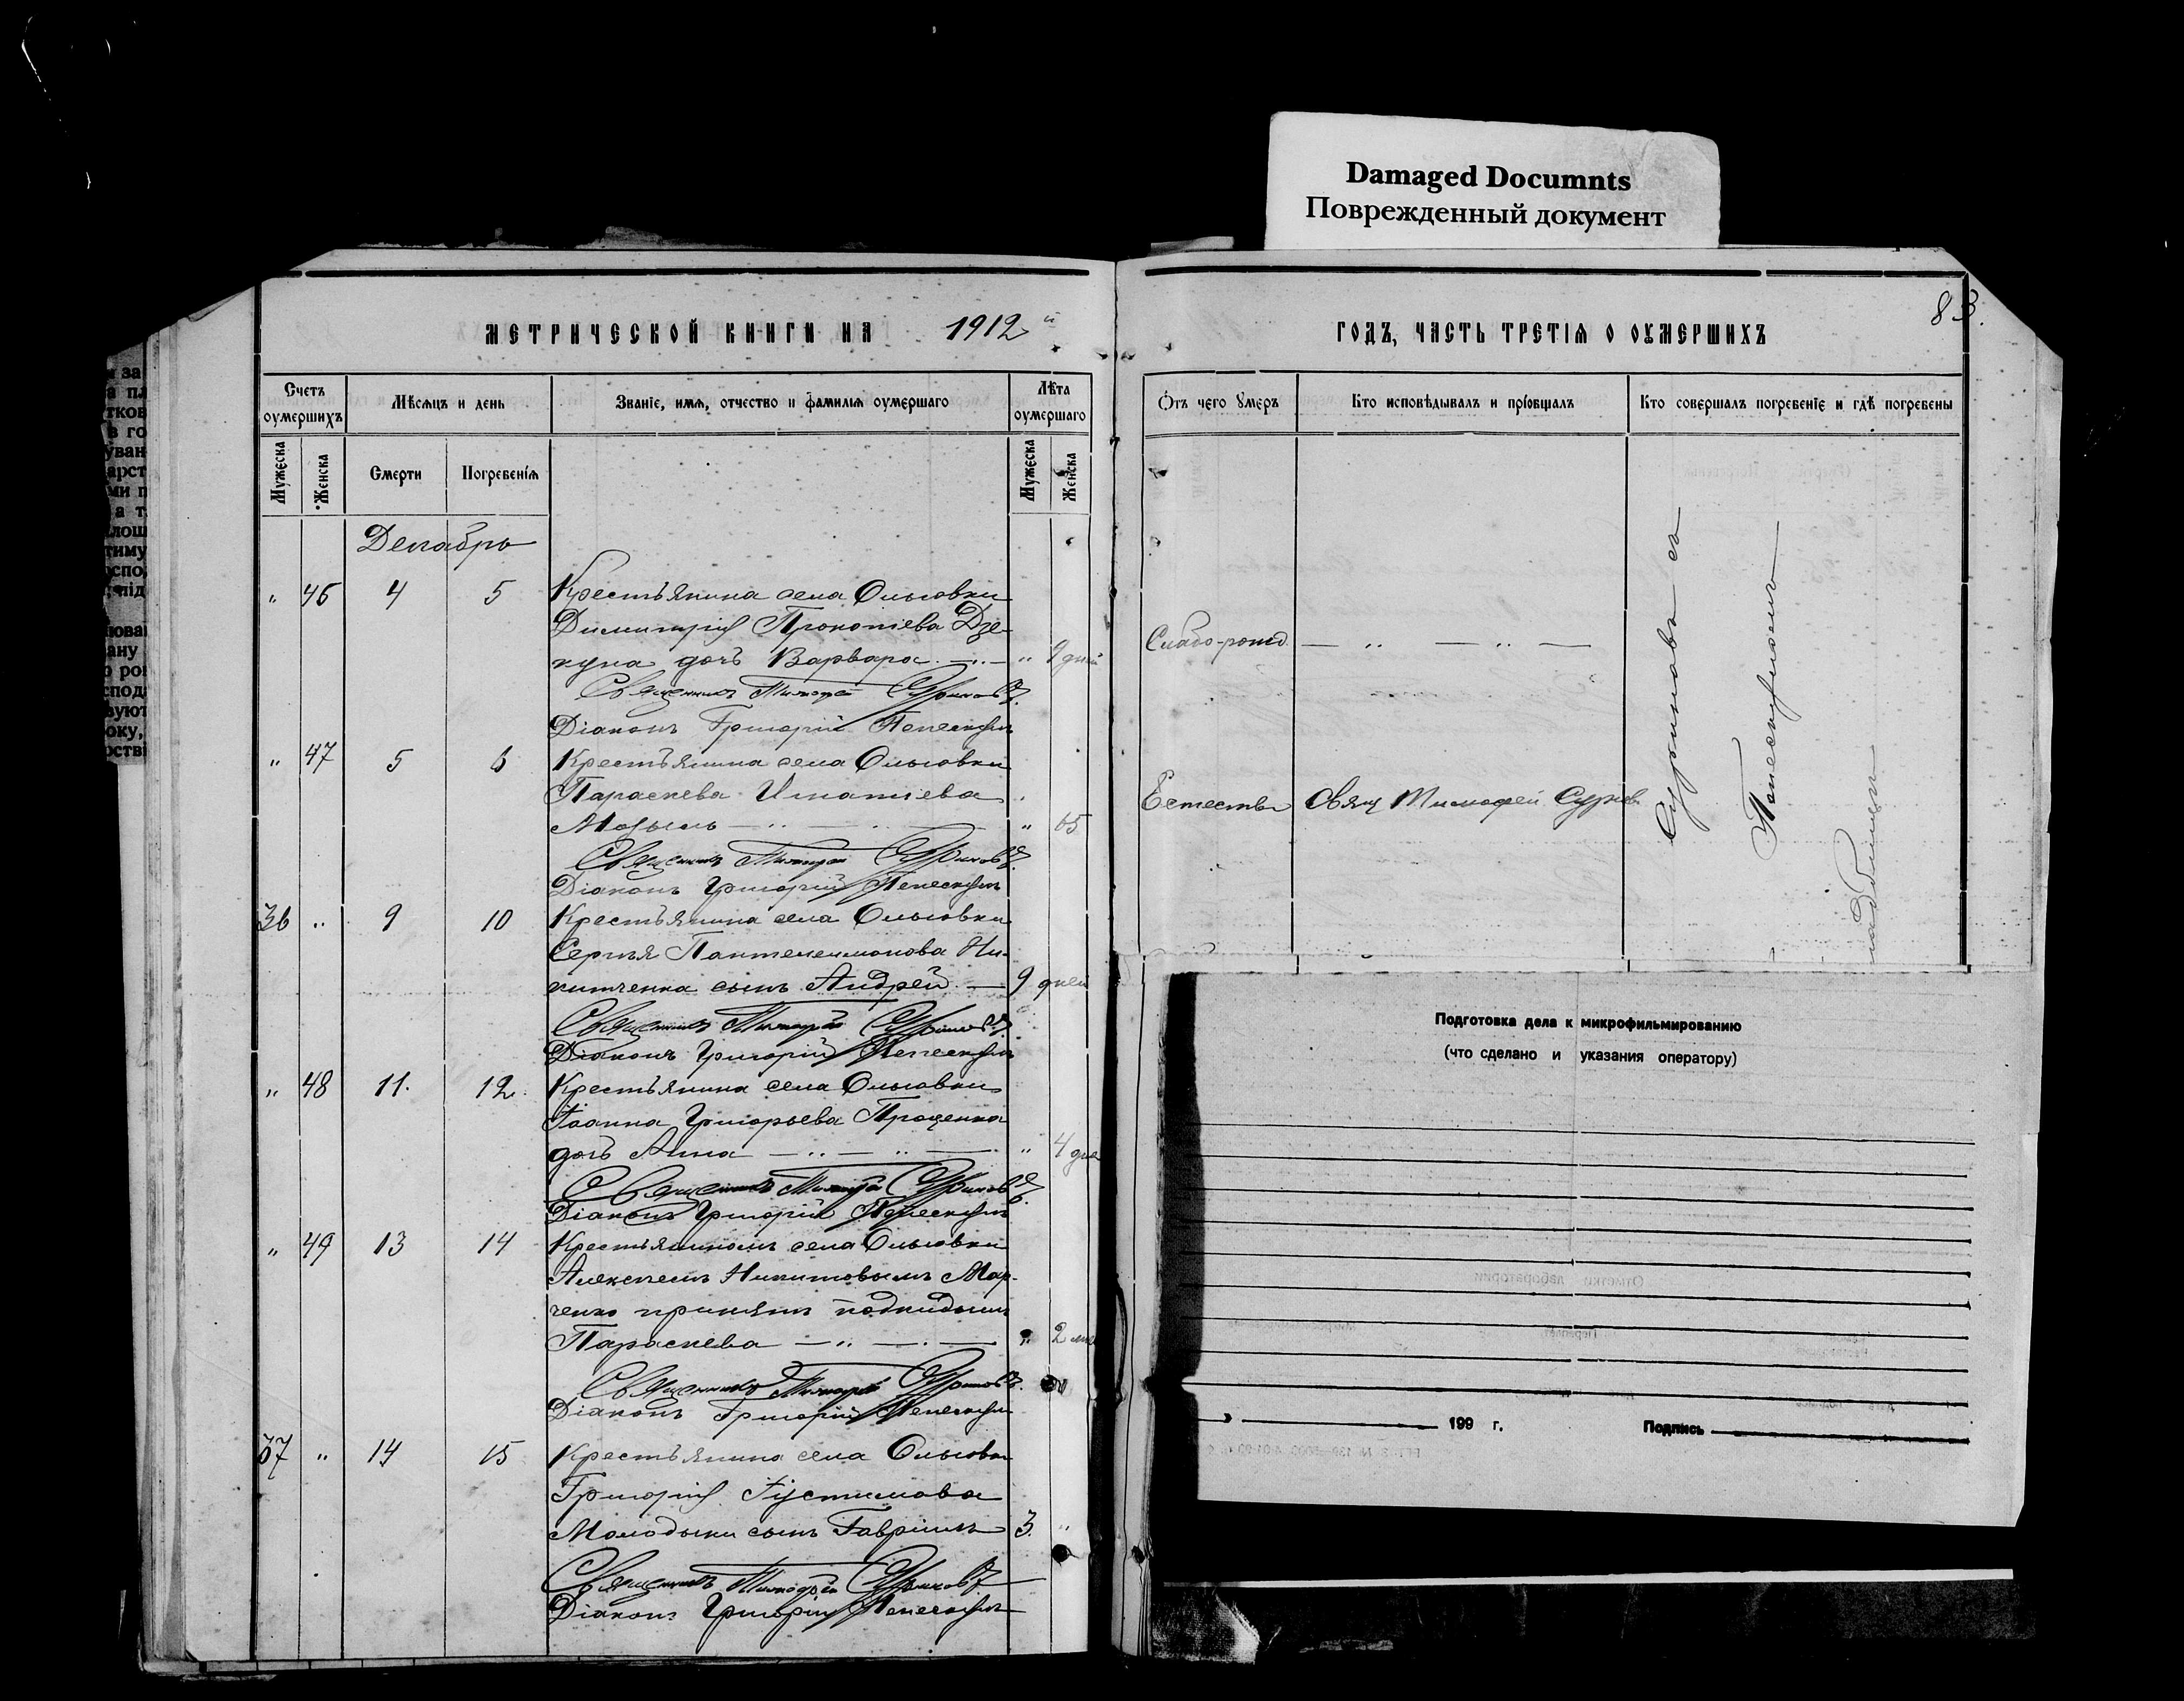 Damaged Documnts
Поврежденный документ
83.
МЕТРИЧЕСКОЙ КНИГИ НА 1912й
ГОДЪ, ЧАСТЬ ТРЕТІЯ О ОУМЕРШИХЪ
Счетъ оумершихъ
Мѣсяцъ и день
Званіе, имя, отчество и фамилія оумершаго
Лѣта оумершаго
Мужеска
Женска
Смерти
Погребенія
Мужеска
Женска
Отъ чего умеръ
Кто исповѣдывалъ и пріобщалъ
Кто совершалъ погребеніе и гдѣ погребены
Декабрь
" 46 4 5 Крестьянина села Ольговки
Димитрія Прокопіева Дзе-
куна дочь Варвара " 9 дней
Священникъ Тимофей Суриновъ
Діаконъ Григорій
" 47 5 6 Крестьянина села Ольговки
Параскева Игнатіева
" 65
Священникъ Тимофей Суриновъ
Діаконъ Григорій
36 " 9 10 Крестьянина села Ольговки
Сергѣя Пантелеимонова Ни-
китченка сынъ Андрей 9 дней
Священникъ Тимофей Суриновъ
Діаконъ Григорій
" 48 11. 12. Крестьянина села Ольговки
Іоанна Григорьева Проценка
дочь Анна " 4 дня
Священникъ Тимофей Суриновъ
Діаконъ Григорій
" 49 13 14 Крестьяниномъ села Ольговки
Алексѣемъ Никитовымъ Мар-
ченко принятъ подкидышъ
Параскева " 2 мѣ
Священникъ Тимофей Суриновъ
Діаконъ Григорій
37 " 14 15 Крестьянина села Ольговки
Григорія Іустинова
Молодыки сынъ Гавріилъ 3. "
Священникъ Тимофей Суриновъ
Діаконъ Григорій
Слабо-рожд.
Естествен Свящ Тимофей Сурин
Суриновъ съ
кладбищѣ
Подготовка дела к микрофильмированию
(что сделано и указания оператору)
199 г.
Подпись